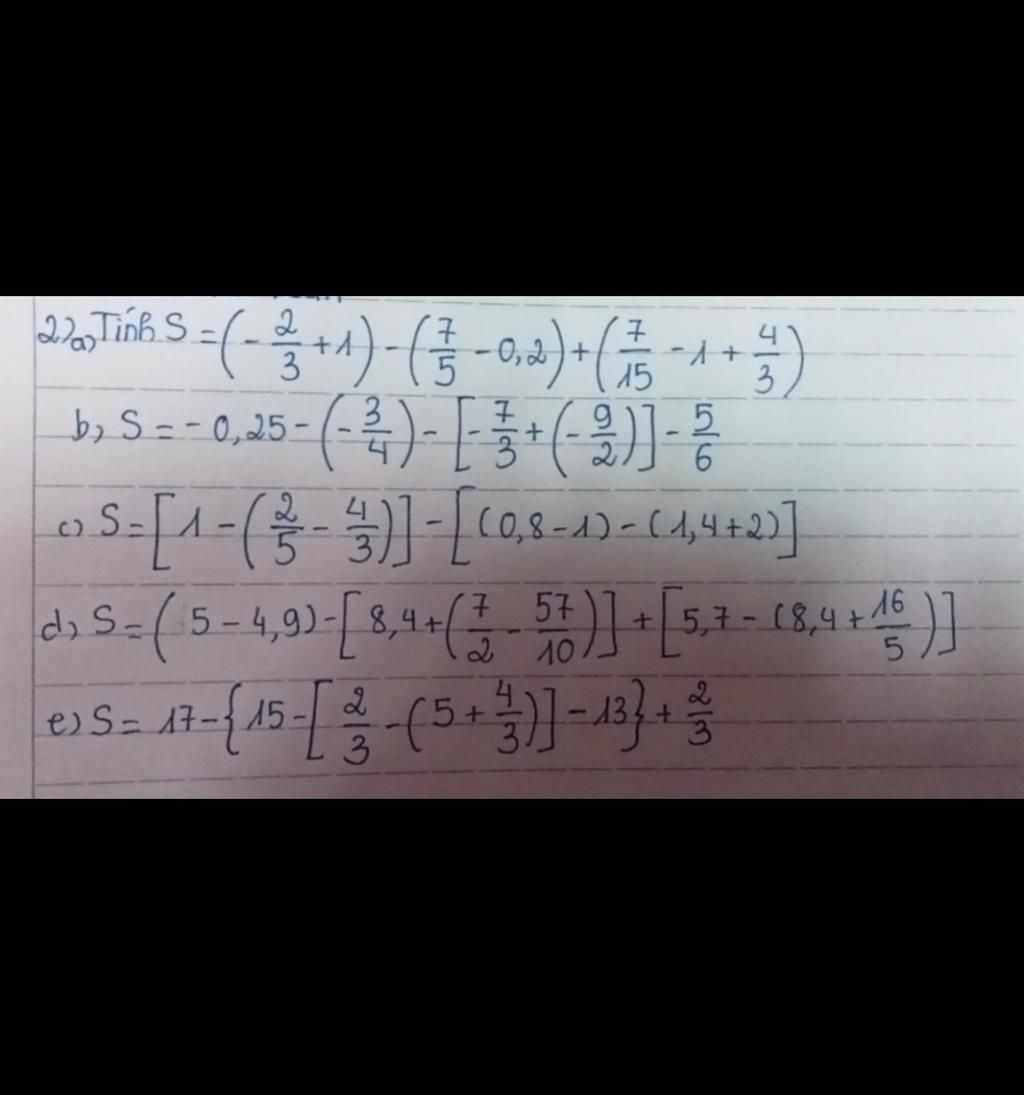 2) a) Tính S = (-2/3 + 1) - (7/5 - 0,2) + (7/15 - 1 + 4/3)
b) S = - 0,25 - (-3/4) - [-7/3 + (-9/2)] - 5/6
c) S = [1 - (2/5 - 4/3)] - [(0,8 - 1) - (1,4 + 2)]
d) S = (5 - 4,9) - [8,4 + (7/2 - 57/10)] + [5,7 - (8,4 + 16/5)]
e) S = 17 - {15 - [2/3 - (5 + 4/3)] - 13} + 2/3